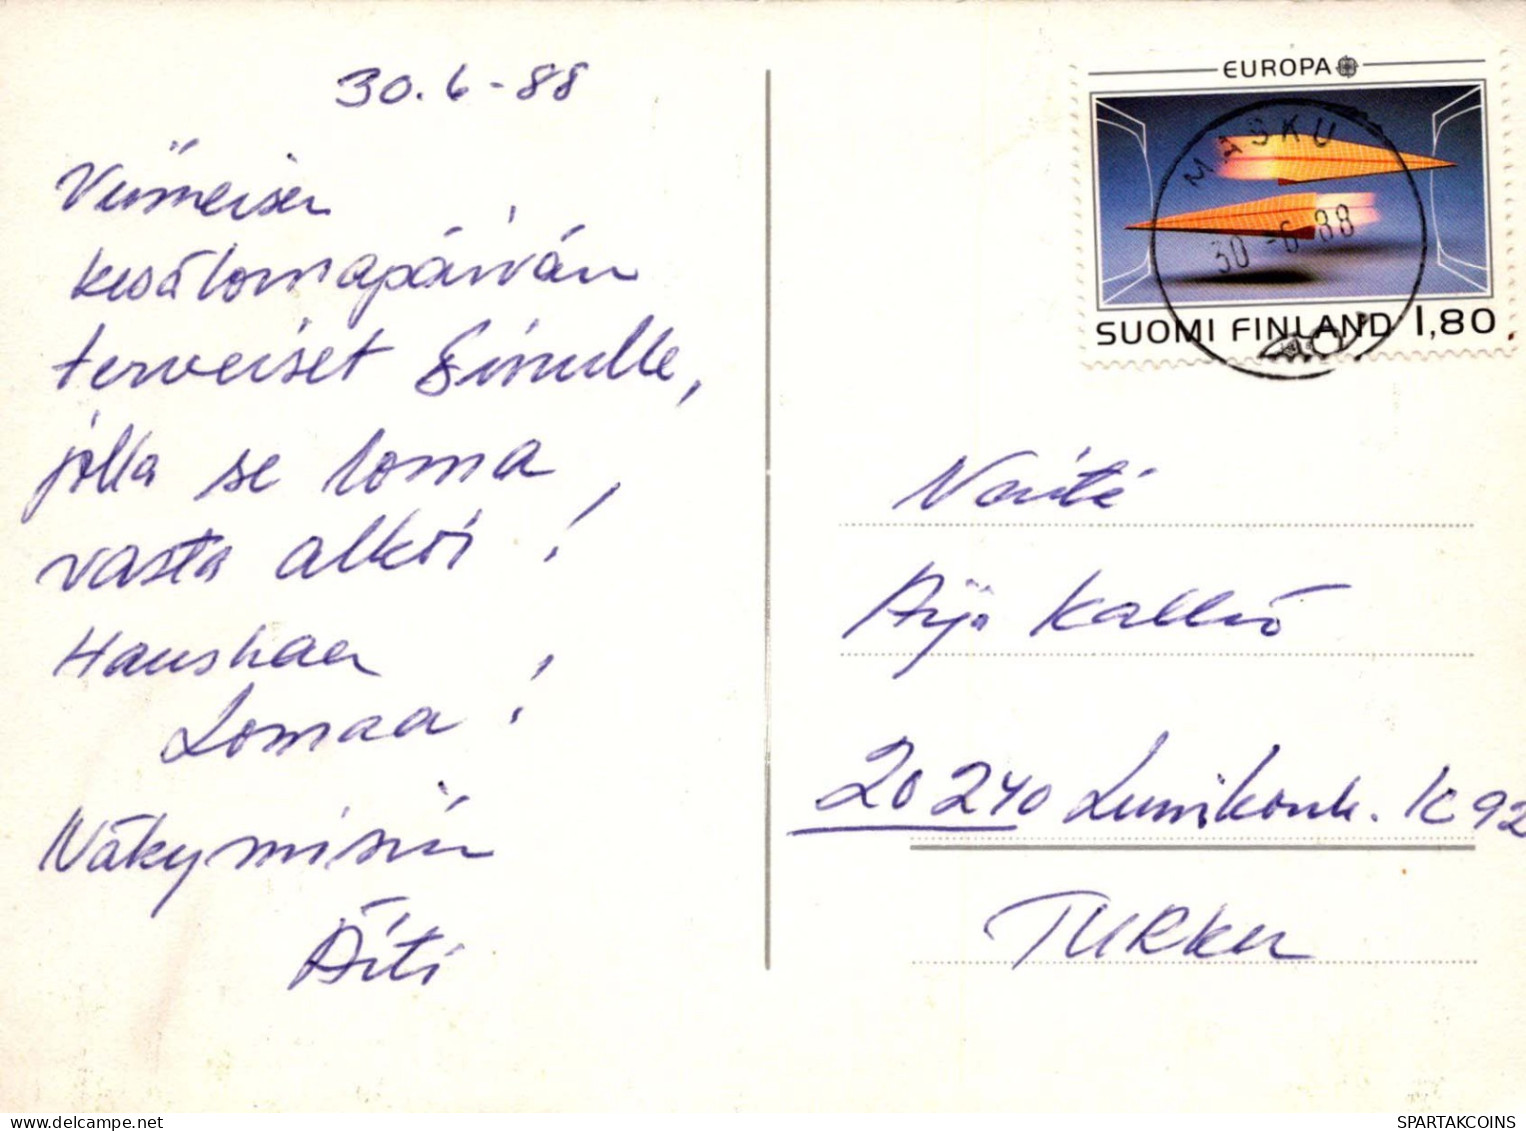 30.6-88
Viimeisen
kesälomapäivän
terveiset Sinulle,
jolla se loma
vasta alkoi!
Hauskaa
Lomaa!
Näkymisiin
Äiti
EUROPA
MASKU
30 -6 88
SUOMI FINLAND 1,80
Neiti
Aija Kallio
20240 K 92
TURKU
SPARTAKCOINS